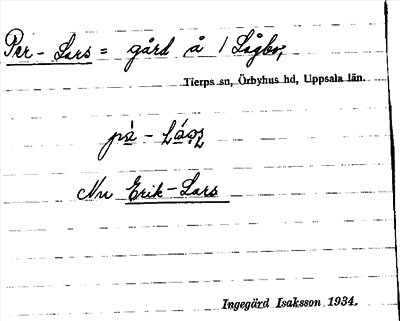 Per-Lars = gård å 1 Lågbo;
Tierps sn, Örbyhus hd, Uppsala län.
Nu Erik-Lars
Ingegärd Isaksson 1934.